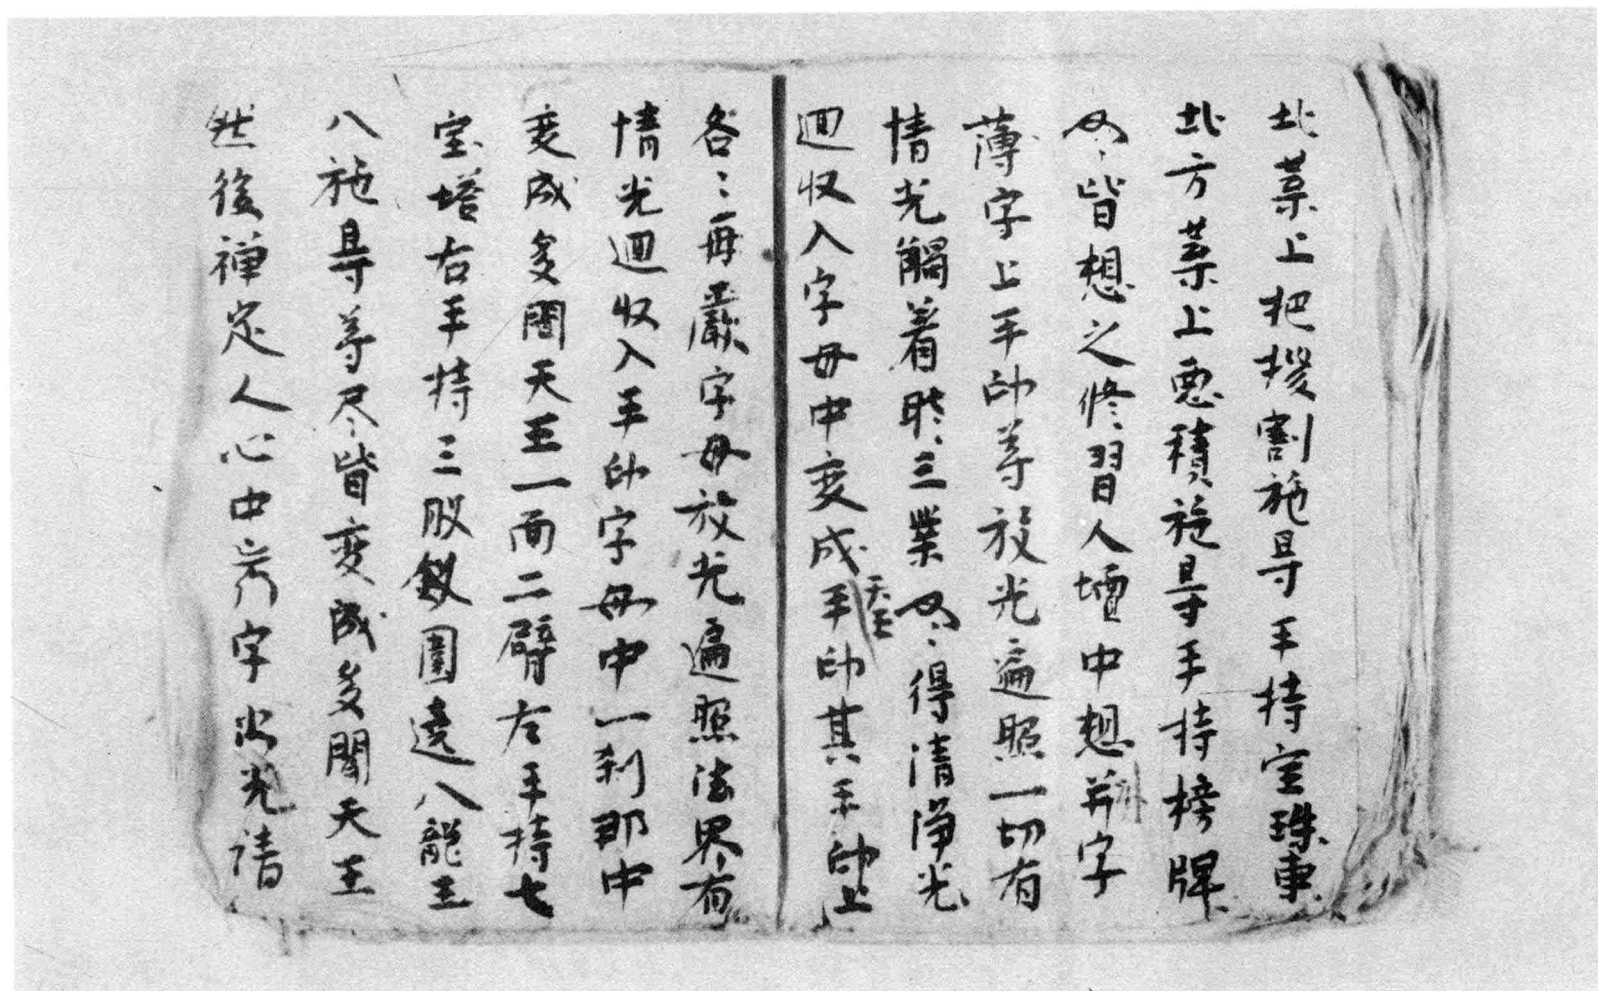 北葉上把撥割施㝵手持宝珠東
北方葉上惡積施㝵手持榜牌
尽皆想之修習人壇中想并字
薄字上手印等放光遍照一切有
情光觸着時三業尽得清淨光
迴収入字母中变成手印其手印上
天王
各〻毋嚴字母放光遍照法界有
情光迴収入手印字母中一刹那中
变成多聞天王一面二臂左手持七
宝塔右手持三股釵圍遶八龍王
八施㝵等尽皆变成多聞天王
然後禅定人心中字出光請